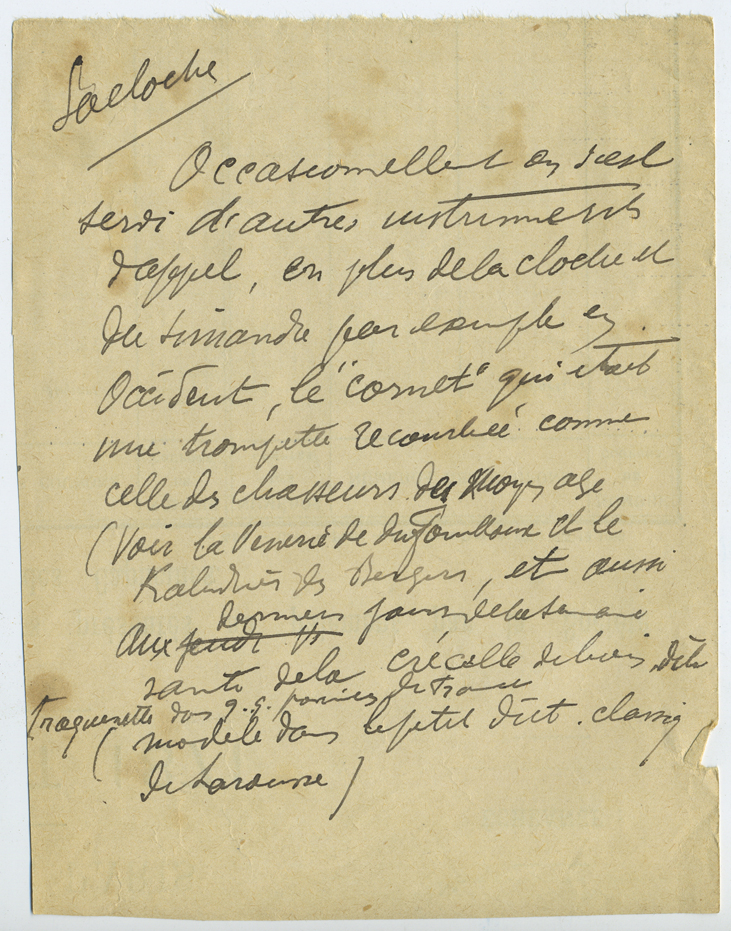 La cloche
Occasionnellement on s'est
servi d'autres instruments
d'appel, en plus de la cloche et
du simandre par exemple en
Occident, le "cornet" qui était
une trompette recourbée comme
celle des chasseurs du Moyen age
(Voir la Venerie de du Fouilloux et le
Kalendrier des Bergers, et aussi
aux jeudi Vs derniers jours de la semaine
sainte de la crécelle de bois, dite
traquenette dans q.q. parties de France
(modèle dans le petit dict. classiq
de Larousse)